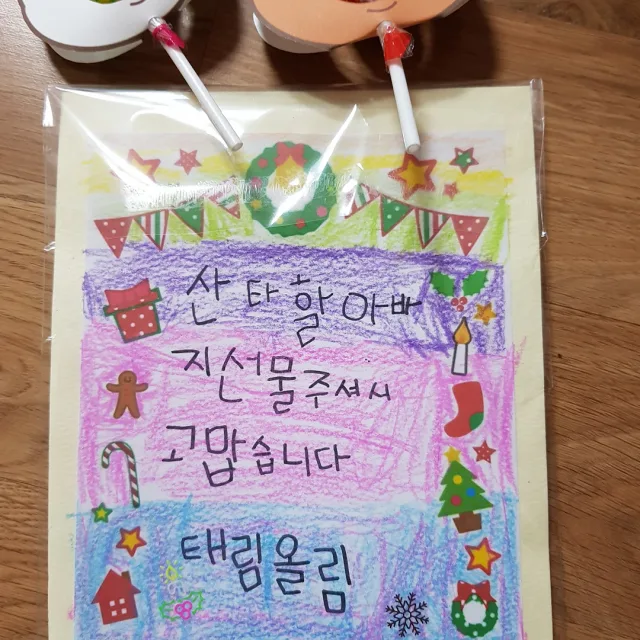 산타할아바
지선물주셔시
고맙습니다
태림올림